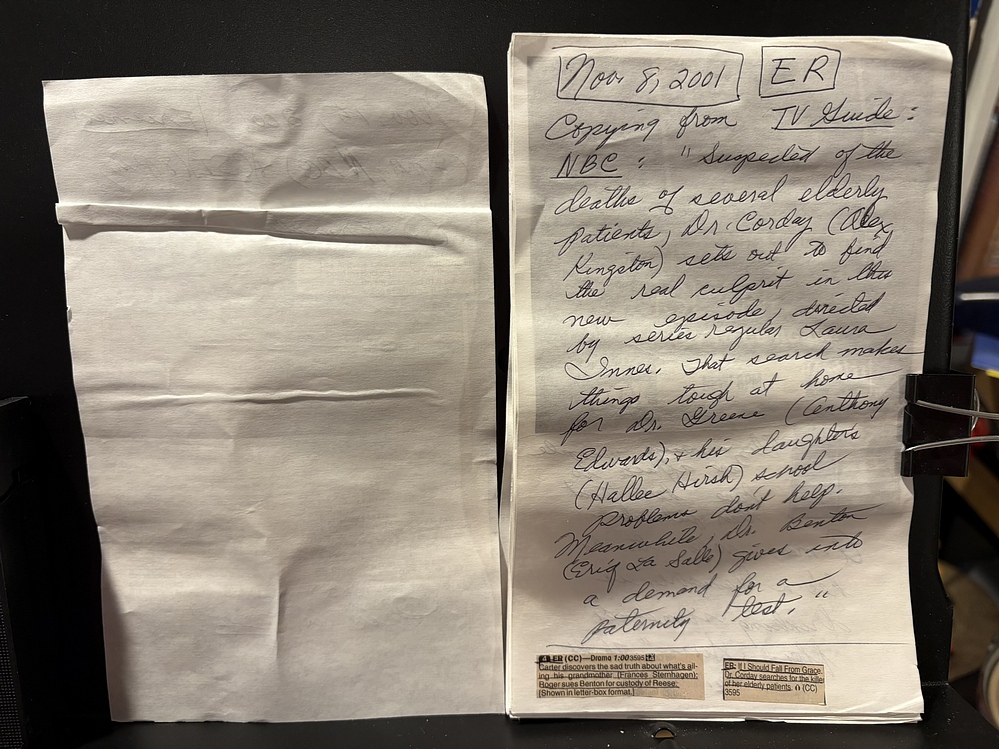 Nov. 8, 2001 ER
Copying from TV Guide:
NBC: "Suspected of the
deaths of several elderly
patients, Dr. Corday (Alex
Kingston) sets out to find
the real culprit in this
new episode, directed
by series regular Laura
Innes. That search makes
things tough at home
for Dr. Greene (Anthony
Edwards), & his daughters
(Hallee Hirsh) school
problems don't help.
Meanwhile, Dr. Benton
(Eriq La Salle) gives into
a demand for a
paternity test."
4 ER (CC)—Drama 1:00 3595
Carter discovers the sad truth about what's ail-
ing his grandmother (Frances Sternhagen);
Roger sues Benton for custody of Reese.
[Shown in letter-box format.]
ER: If I Should Fall From Grace
Dr. Corday searches for the killer
of her elderly patients. (CC)
3595